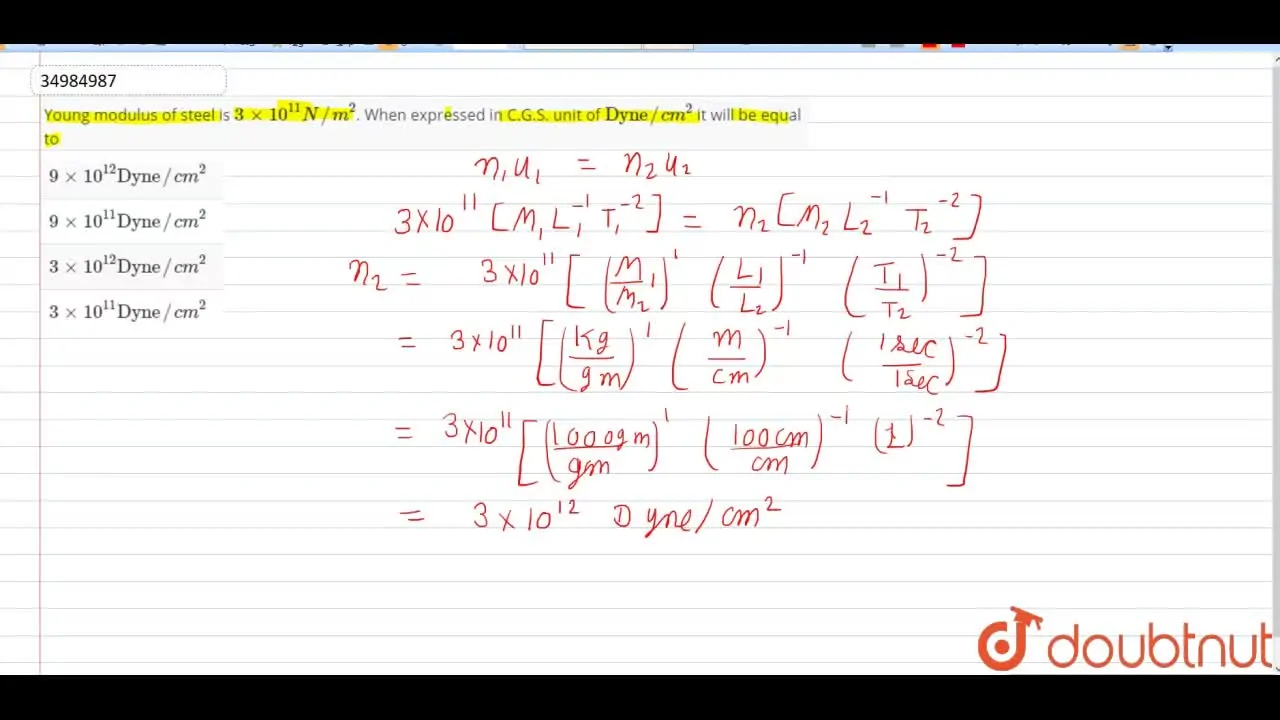 34984987
Young modulus of steel is 3 × 10¹¹ N/m². When expressed in C.G.S. unit of Dyne/cm² it will be equal
to
9 × 10¹² Dyne/cm²
9 × 10¹¹ Dyne/cm²
3 × 10¹² Dyne/cm²
3 × 10¹¹ Dyne/cm²
n₁u₁ = n₂u₂
3×10¹¹ [M₁ L₁⁻¹ T₁⁻²] = n₂ [M₂ L₂⁻¹ T₂⁻²]
n₂ = 3×10¹¹ [(M₁/M₂)¹ (L₁/L₂)⁻¹ (T₁/T₂)⁻²]
= 3×10¹¹ [(Kg/gm)¹ (m/cm)⁻¹ (1sec/1sec)⁻²]
= 3×10¹¹ [(1000gm/gm)¹ (100cm/cm)⁻¹ (1)⁻²]
= 3×10¹² Dyne/cm²
doubtnut